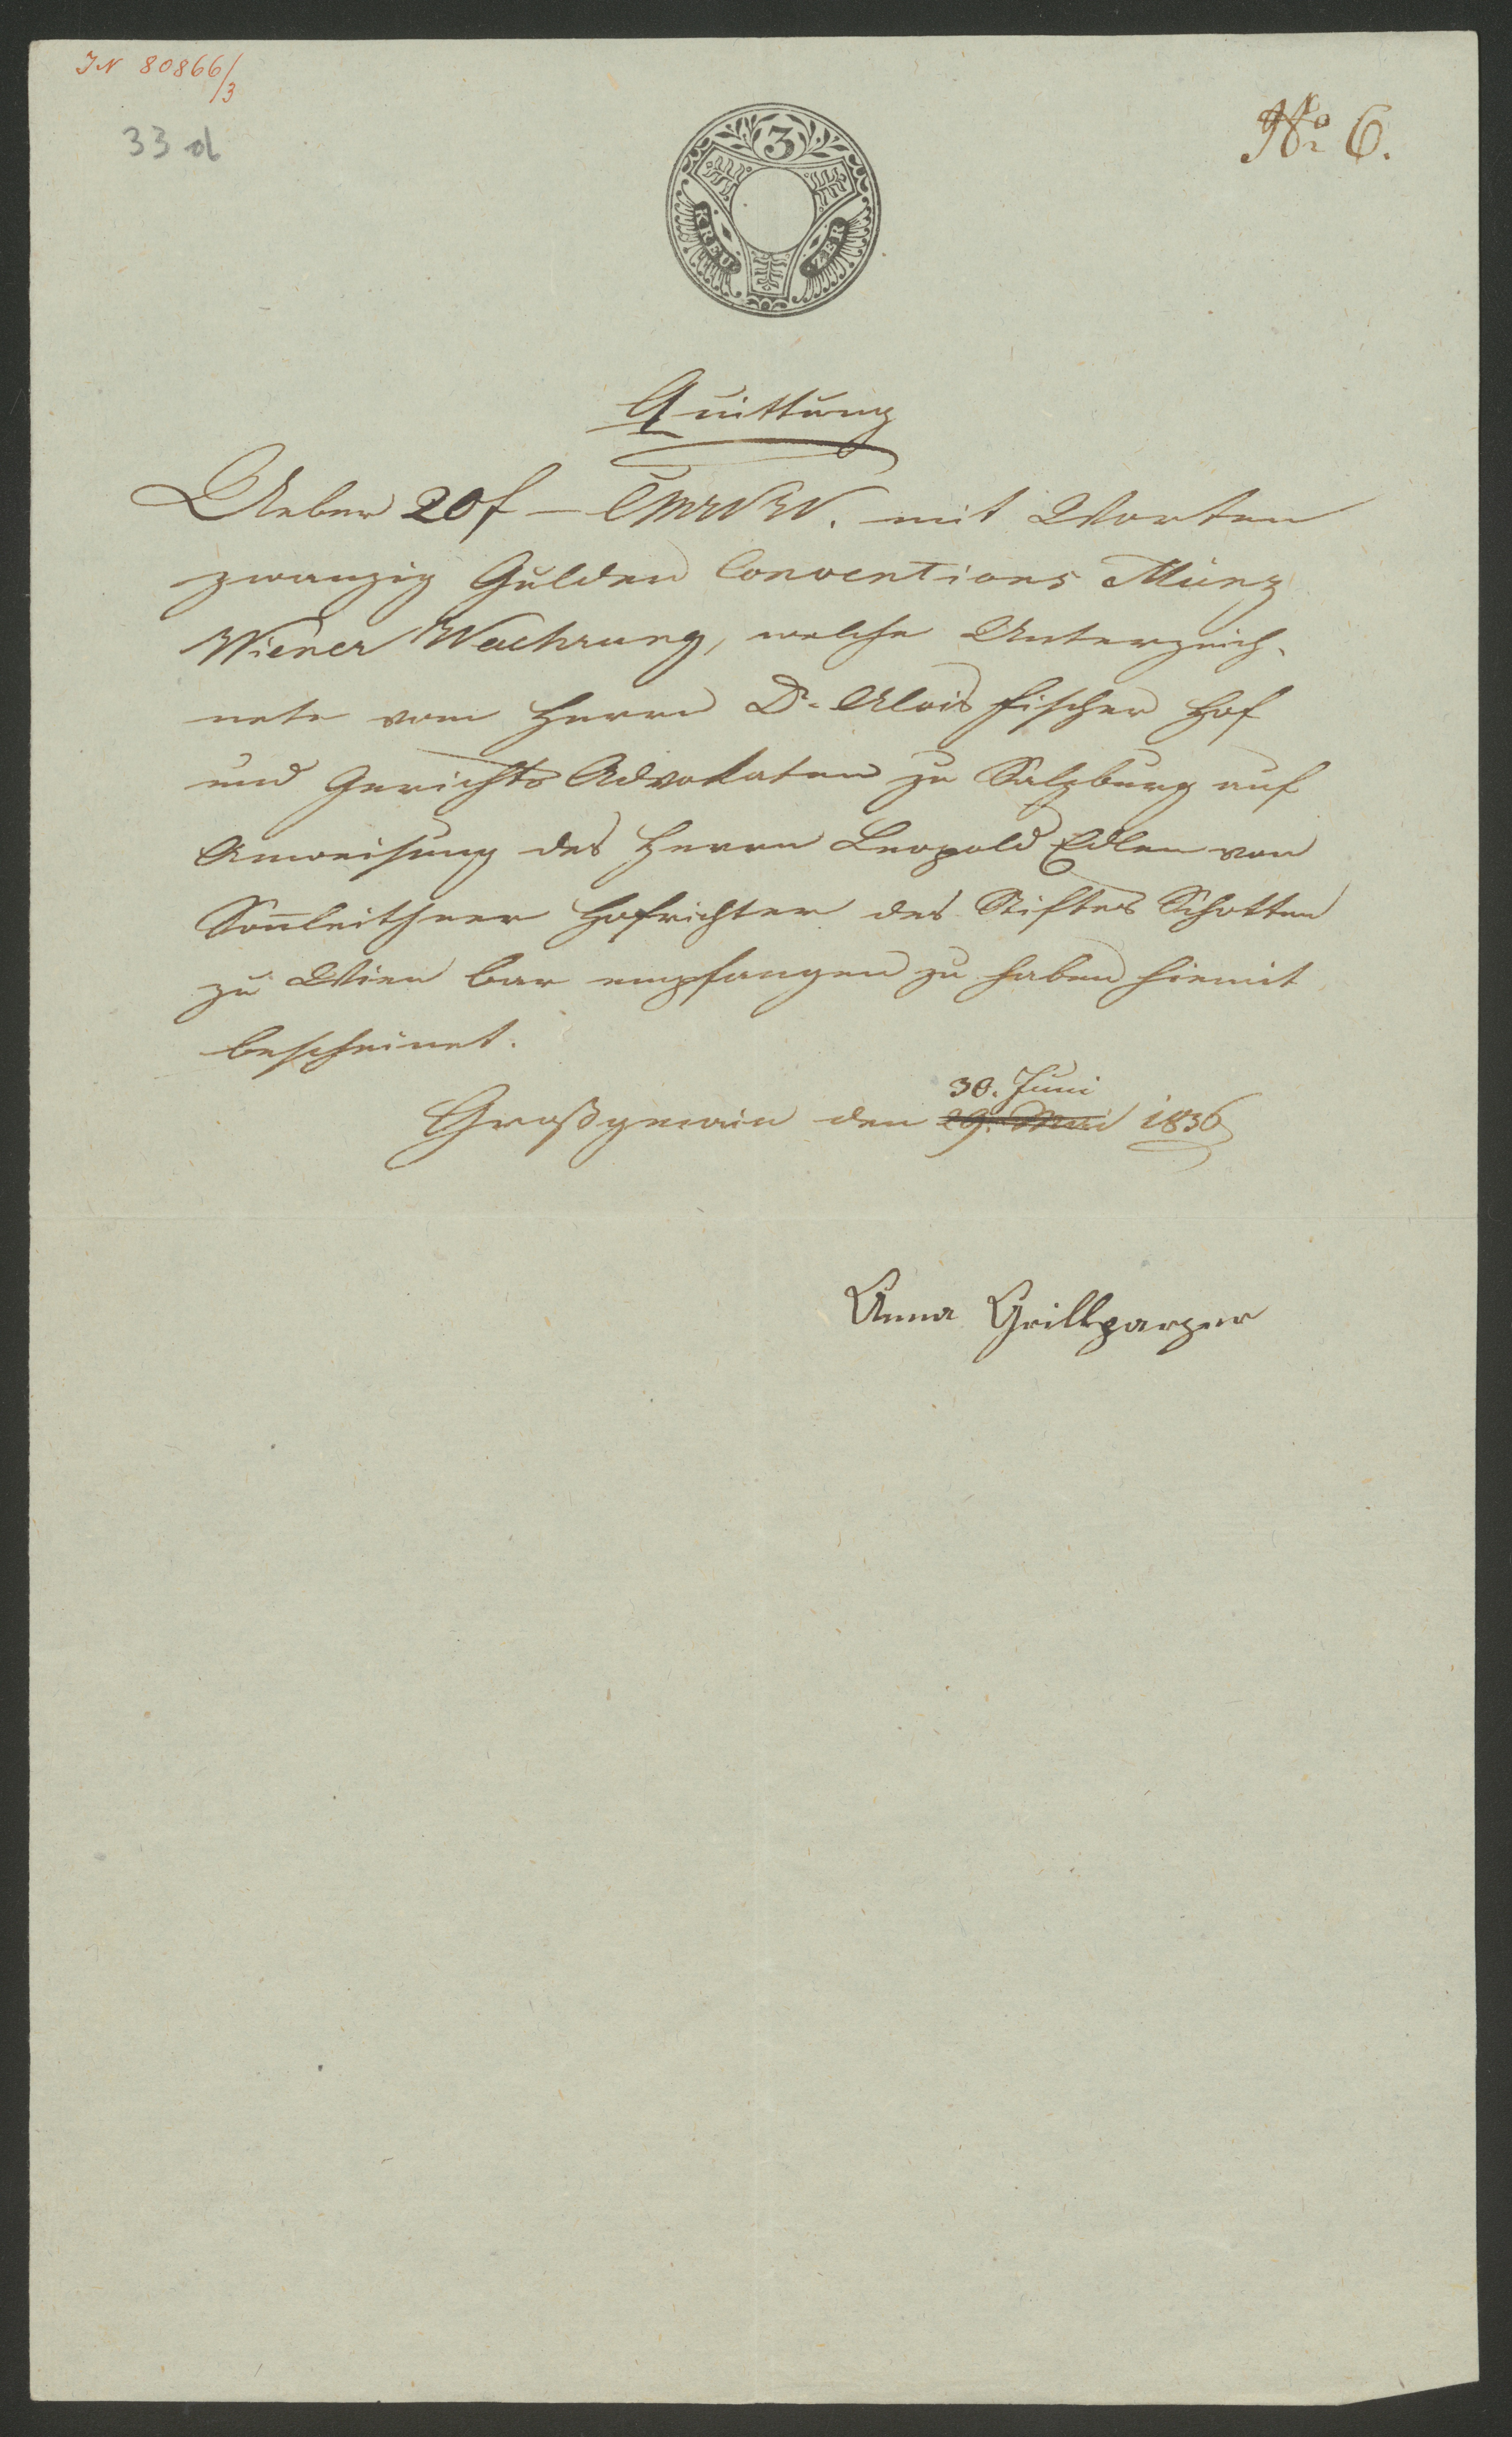 IN 80866/3
33 d
No 6.
3
KREU ZER
Quittung
Ueber 20f – CMWW. mit Worten
zwanzig Gulden Conventions Münz
Wiener Waehrung, welche Unterzeich-
nete vom Herrn Dr. Alois Fischer Hof
und Gerichts Advokaten zu Salzburg auf
Anweisung des Herrn Leopold Edlen von
Son̅leithner Hofrichter des Stiftes Schotten
zu Wien bar empfangen zu haben hiemit
bescheinet.
30. Juni
Großgmain den 29. Mai 1836
Anna Grillparzer